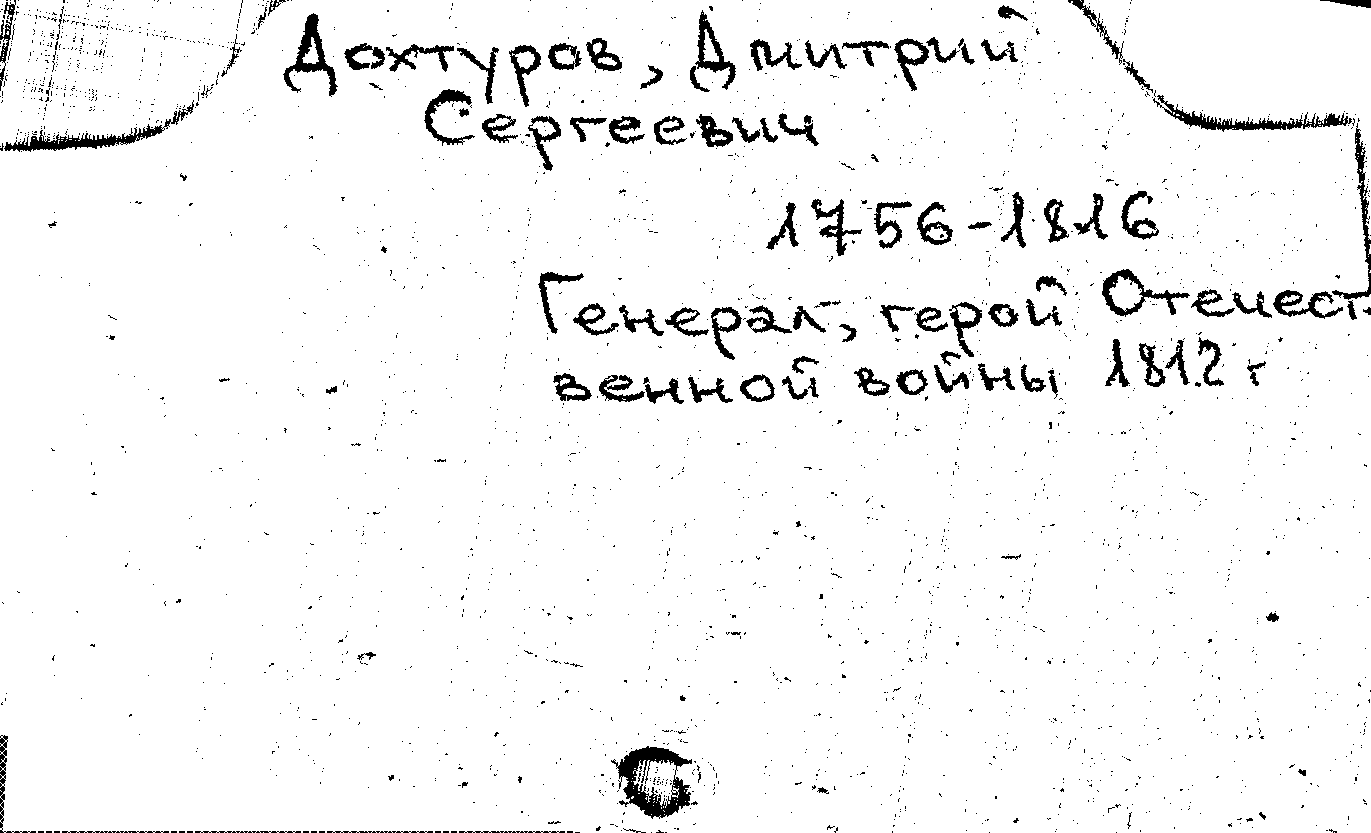 Дохтуров, Дмитрий
Сергеевич
1756-1816
Генерал, герой Отечест-
венной войны 1812 г